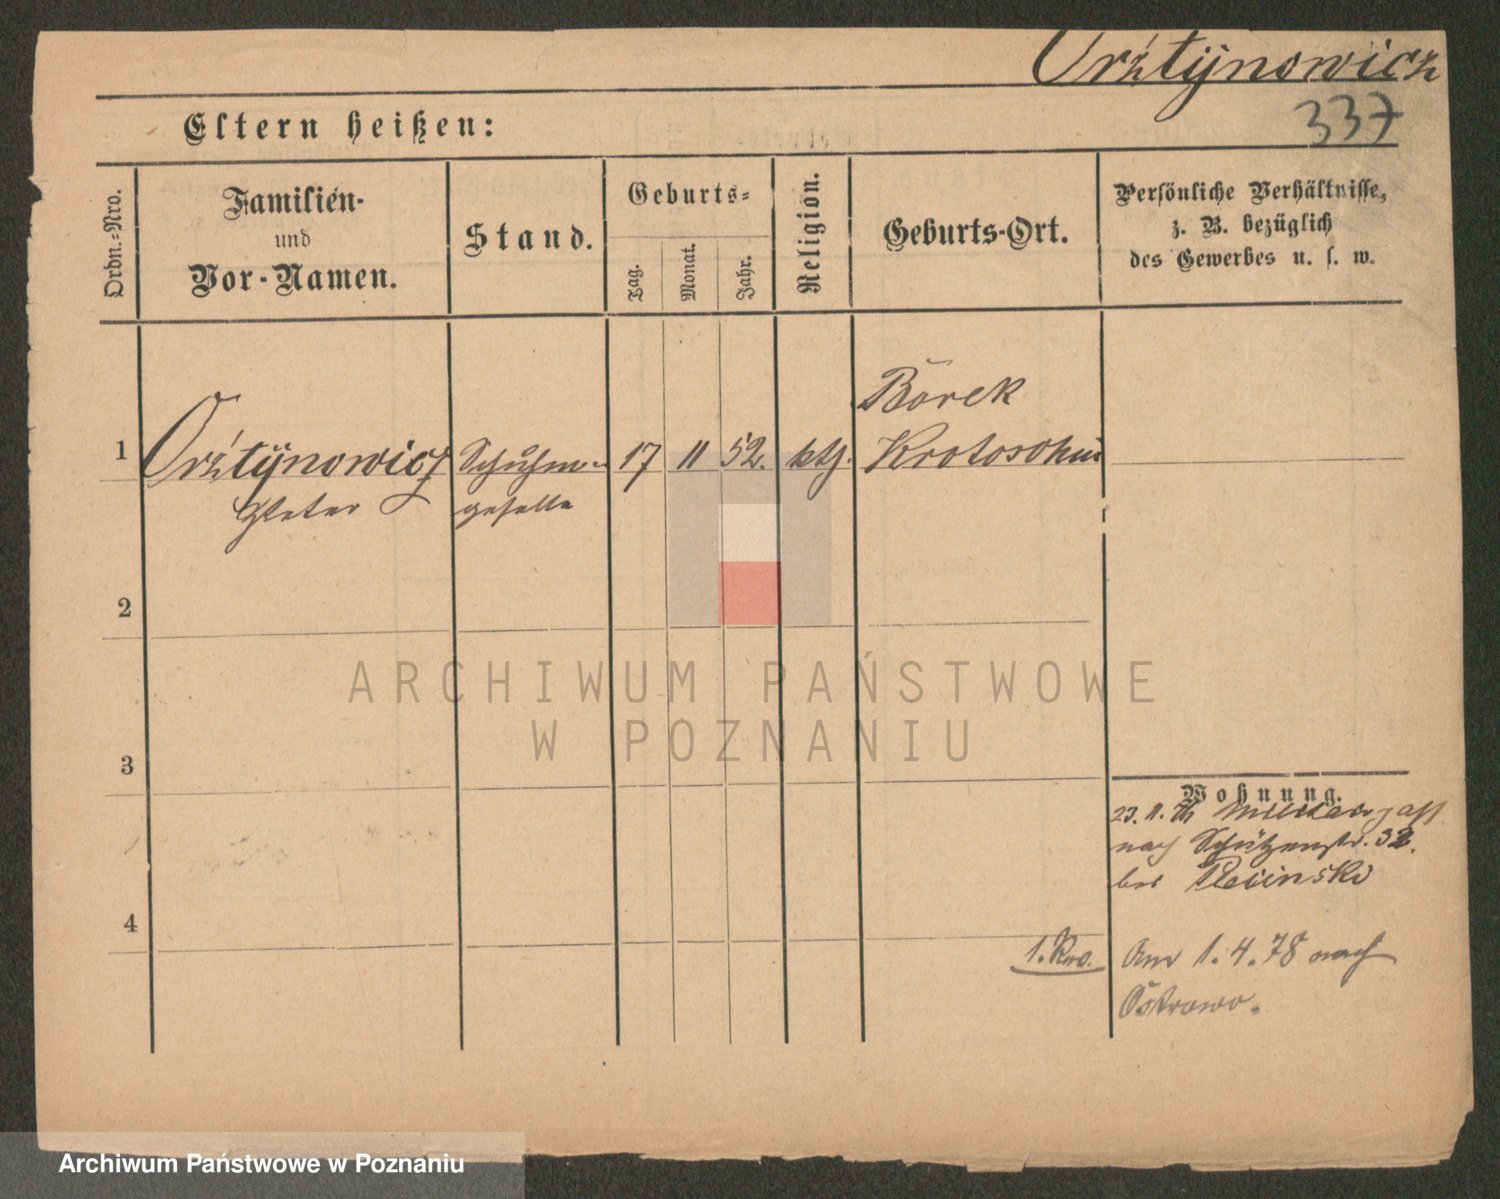 Orźtÿnowicz
337
Eltern heißen:
Ordn.-Nro.
Familien-
und
Vor-Namen.
Stand.
Geburts-
Tag.
Monat.
Jahr.
Religion.
Geburts-Ort.
Persönliche Verhältnisse,
z. B. bezüglich
des Gewerbes u. s. w.
Borek
1 Orźtÿnowicz Schuhm- 17 11 52. kth. Krotoschin
Peter geselle
2
ARCHIWUM PAŃSTWOWE
W POZNANIU
3
Wohnung.
23. 11. Militairpaß
nach Schützenstr. 32.
bei
4
1. Kro. Am 1. 4. 78 nach
Ostrowo.
Archiwum Państwowe w Poznaniu